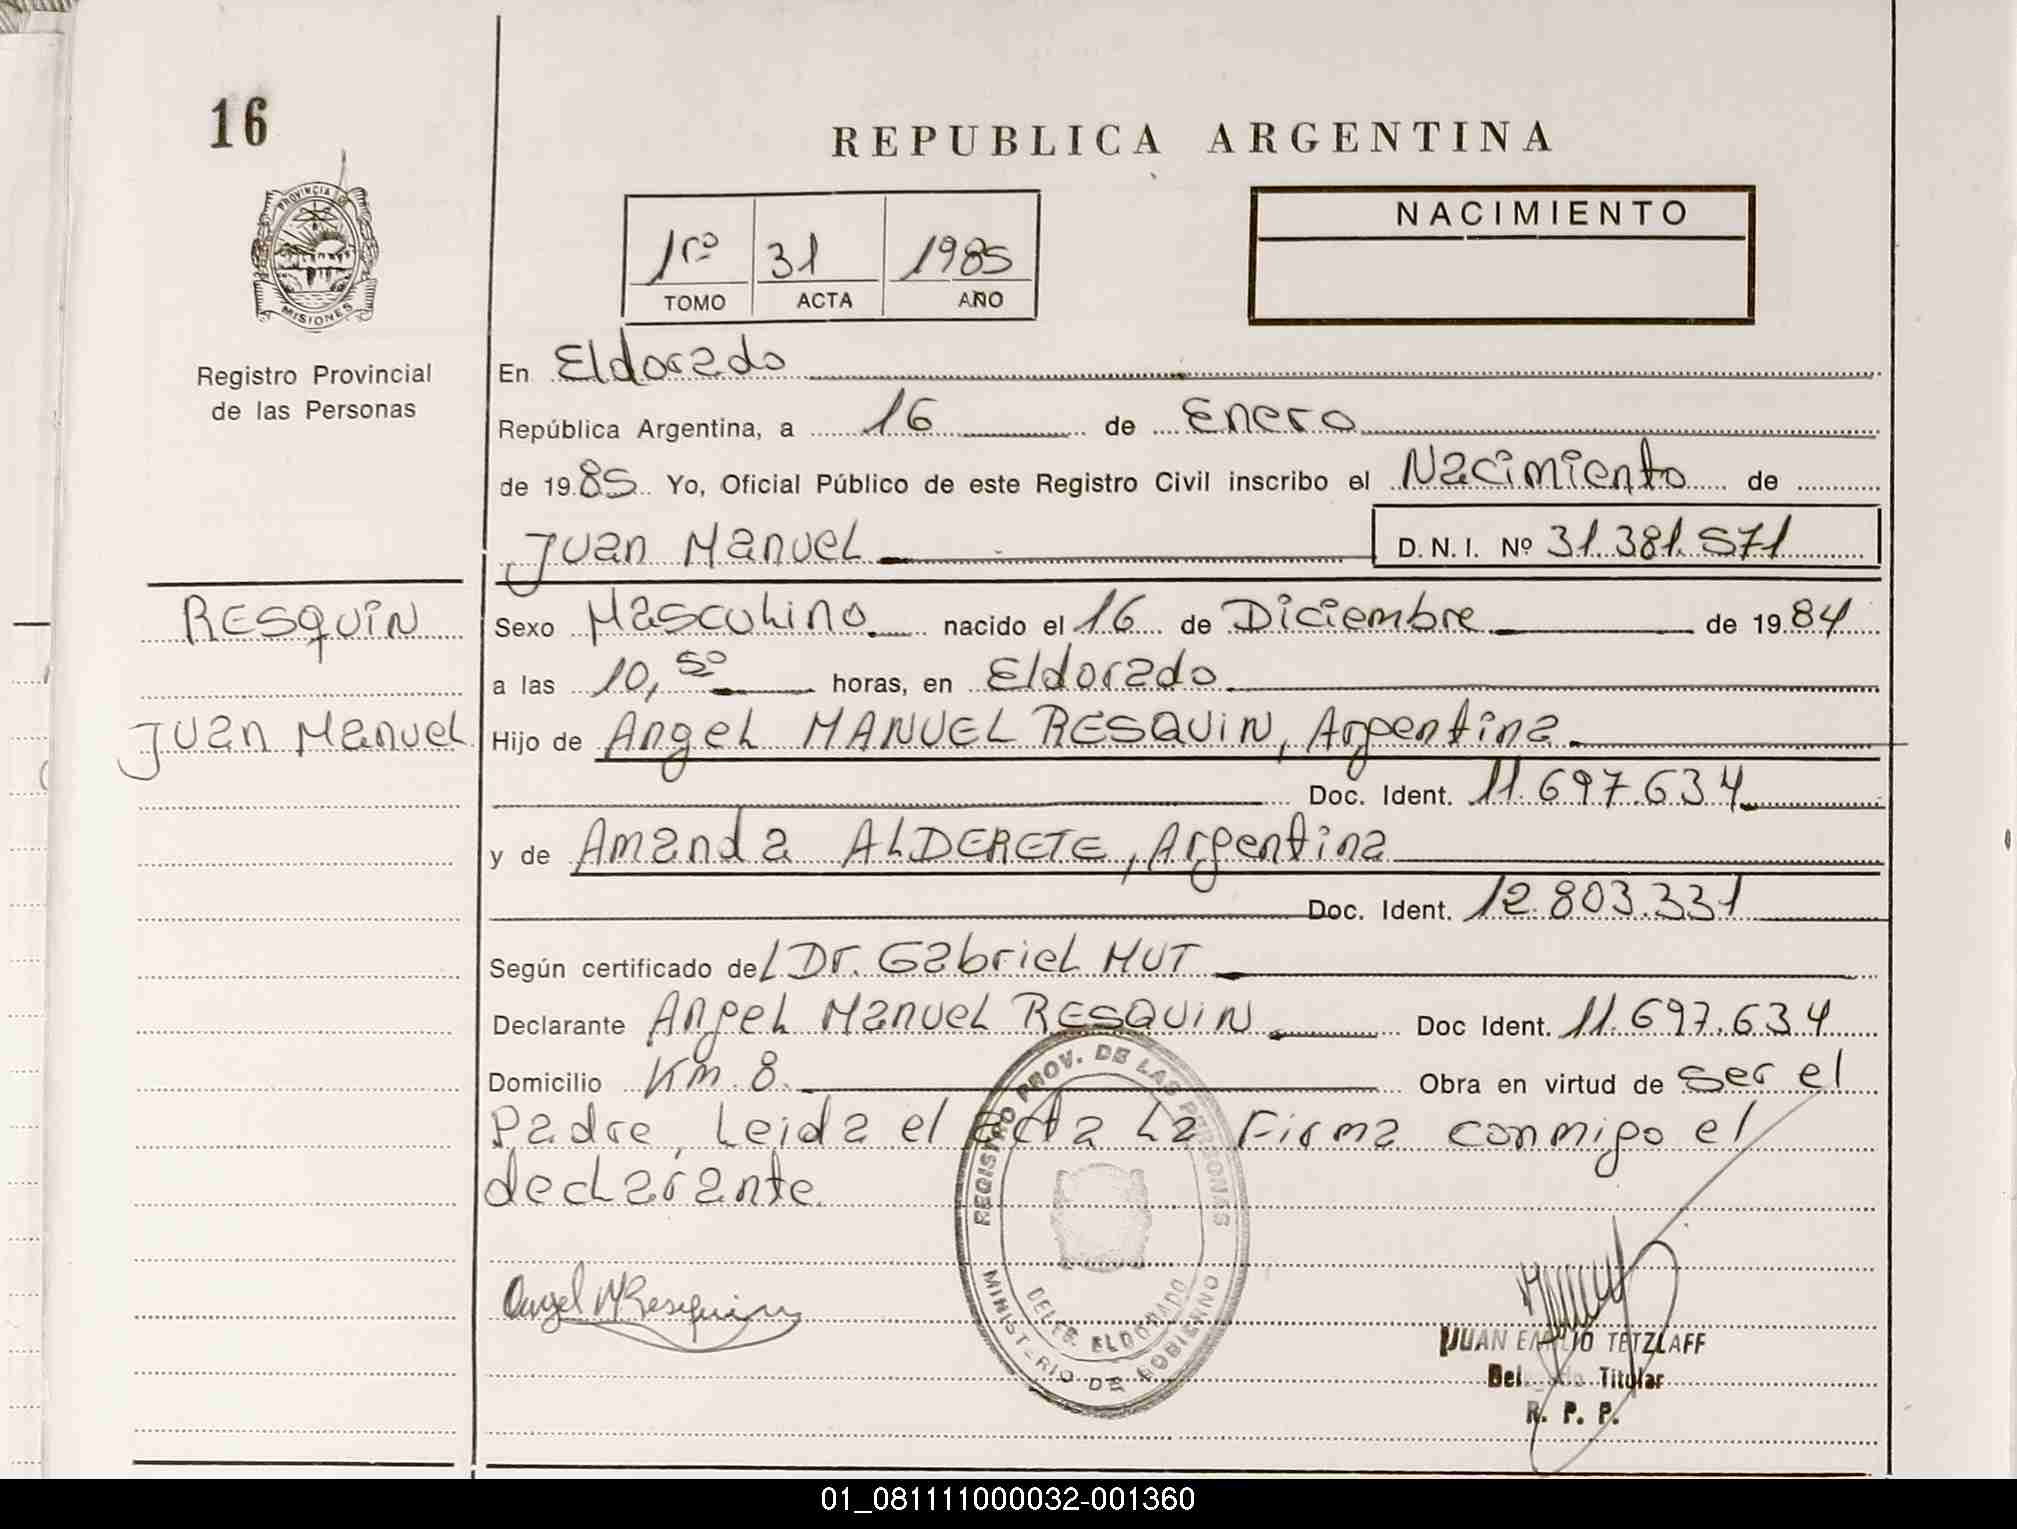 16
REPUBLICA ARGENTINA
PROVINCIA DE
MISIONES
Registro Provincial
de las Personas
1ro 31 1985
TOMO ACTA AÑO
NACIMIENTO
En Eldorado
República Argentina, a 16 de Enero
de 1985 Yo, Oficial Público de este Registro Civil inscribo el Nacimiento de
Juan Manuel D.N.I. Nº 31.381.571
RESQUIN
Juan Manuel
Sexo Masculino nacido el 16 de Diciembre de 1984
a las 10,50 horas, en Eldorado
Hijo de Angel MANUEL RESQUIN, Argentina
Doc. Ident. 11.697.634
y de Amanda ALDERETE, Argentina
Doc. Ident. 12.803.331
Según certificado del Dr. Gabriel MUT
Declarante Angel Manuel RESQUIN Doc Ident. 11.697.634
Domicilio Km. 8. Obra en virtud de ser el
Padre, Leida el acta La Firma conmigo el
declarante.
Angel M Resquin
REGISTRO PROV. DE LAS PERSONAS
DELEG. ELDORADO
MINISTERIO DE GOBIERNO
JUAN EMILIO TETZLAFF
Titular
R. P. P.
01_081111000032-001360